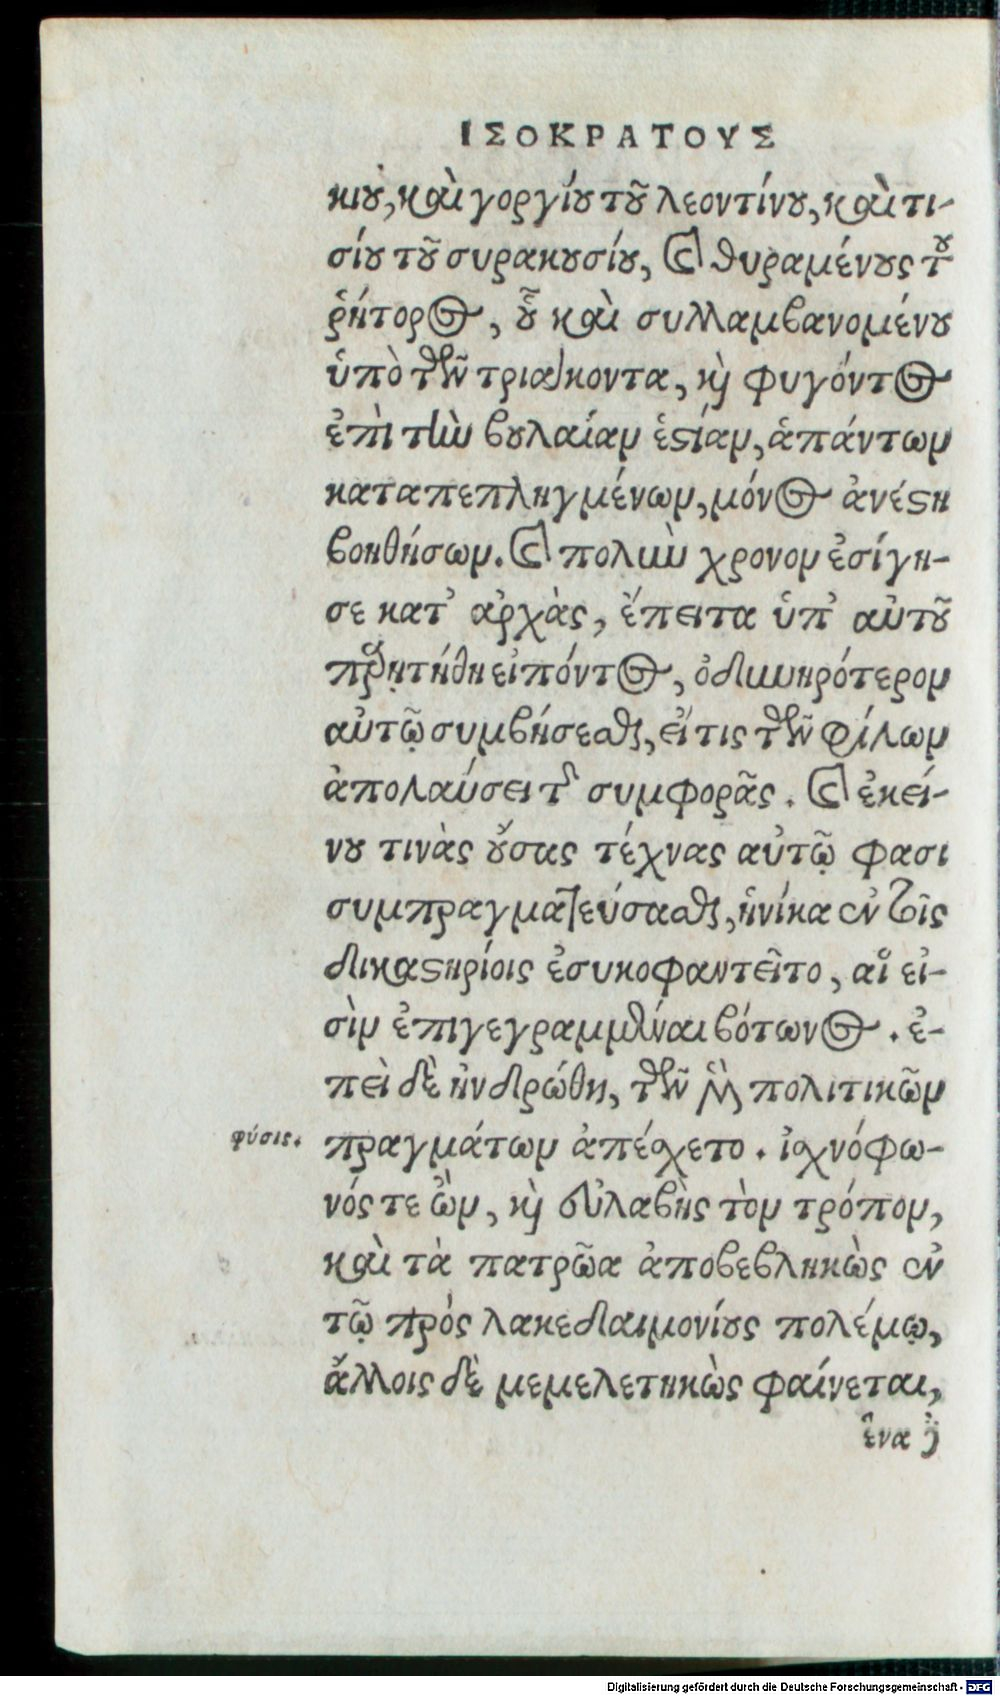 ΙΣΟΚΡΑΤΟΥΣ
κιου, καὶ γοργίου τοῦ λεοντίνου, καὶ τι-
σίου τοῦ συρακουσίου, καὶ θυραμένους τοῦ
ῥήτορος, οὗ καὶ συλλαμβανομένου
ὑπὸ τῶν τριάκοντα, καὶ φυγόντος
ἐπὶ τὴν βουλαίαν ἑστίαν, ἁπάντων
καταπεπληγμένων, μόνος ἀνέστη
βοηθήσων. καὶ πολὺν χρονον ἐσίγη-
σε κατ' ἀρχὰς, ἔπειτα ὑπ' αὐτοῦ
παρῃτήθη εἰπόντος, ὀδυνηρότερον
αὐτῷ συμβήσεσθαι, εἴ τις τῶν φίλων
ἀπολαύσει τῆς συμφορᾶς. καὶ ἐκεί-
νου τινὰς οὔσας τέχνας αὐτῷ φασι
συμπραγματεύσασθαι, ἡνίκα ἐν τοῖς
δικαστηρίοις ἐσυκοφαντεῖτο, αἵ εἰ-
σὶν ἐπιγεγραμμέναι βότωνος. ἐ-
πεὶ δὲ ἠνδρώθη, τῶν μὲν πολιτικῶν
φύσις. πραγμάτων ἀπέσχετο. ἰσχνόφω-
νός τε ὢν, καὶ εὐλαβὴς τὸν τρόπον,
καὶ τὰ πατρῶα ἀποβεβληκὼς ἐν
τῷ πρὸς λακεδαιμονίους πολέμῳ,
ἄλλοις δὲ μεμελετηκὼς φαίνεται,
ἕνα
Digitalisierung gefördert durch die Deutsche Forschungsgemeinschaft - DFG